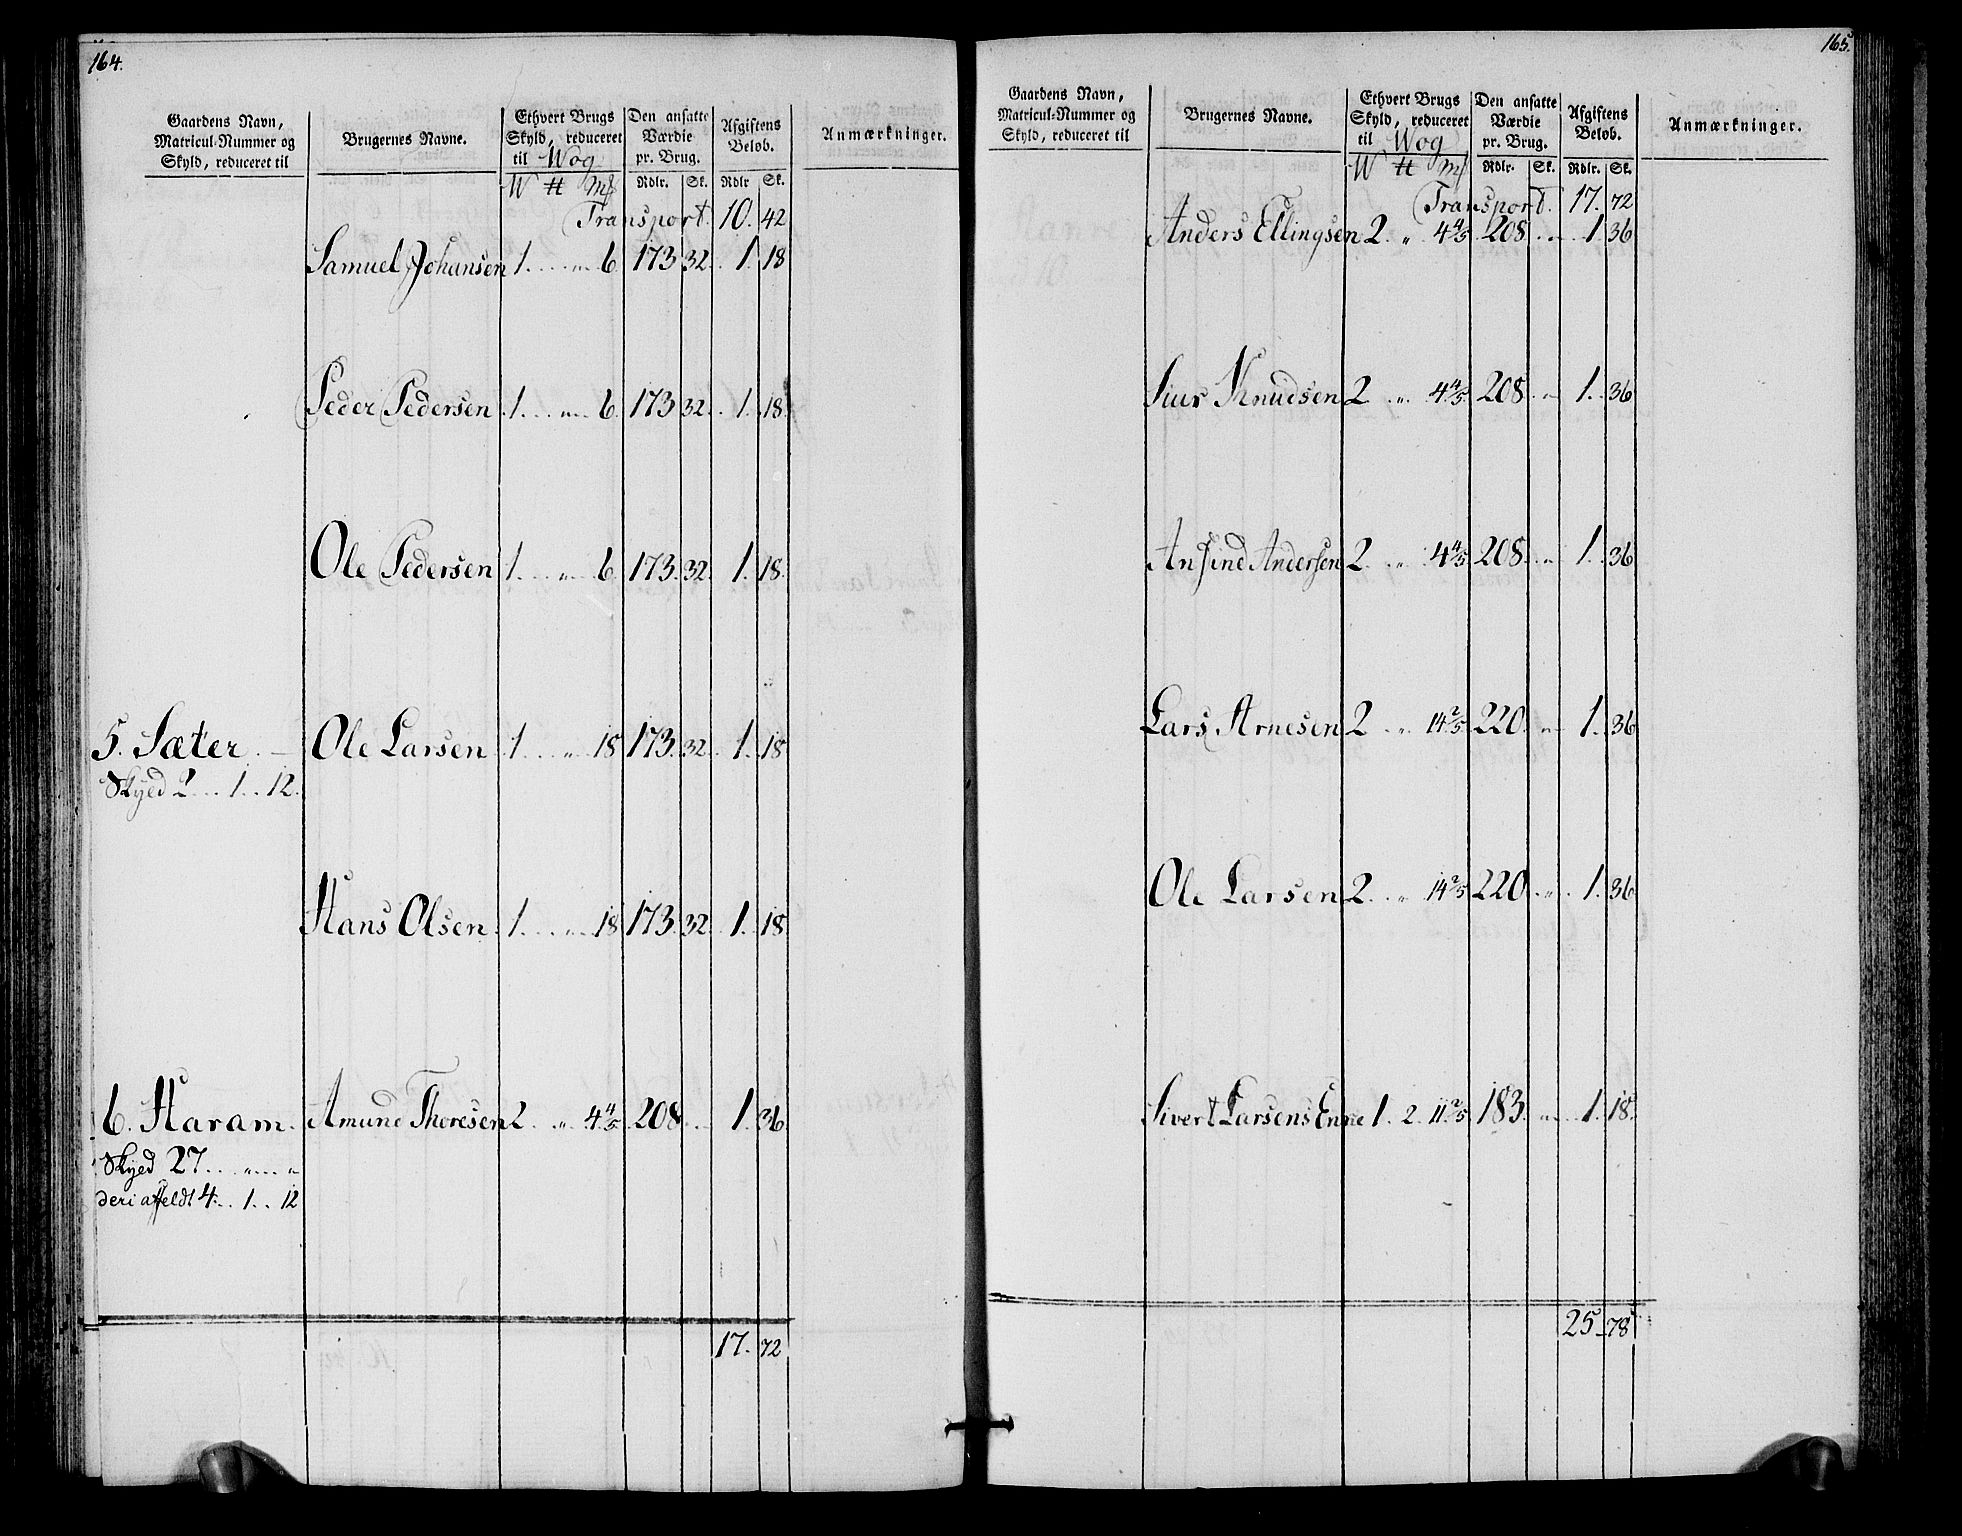 164.
Gaardens Navn, Matricul-Nummer og Skyld, reduceret til | Brugernes Navne. | Ethvert Brugs Skyld, reduceret til Wog W ⌗ mk | Den ansatte Værdie pr. Brug. Rdlr. Sk. | Afgiftens Beløb. Rdlr Sk. | Anmærkninger.
Transport. 10. 42
Samuel Johansen 1 . . „ . . 6 173 32. 1. 18
Peder Pedersen 1 . . „ . . 6. 173 32. 1. 18
Ole Pedersen 1 . . „ . . 6. 173. 32. 1. 18.
5. Sæter. Ole Larsen 1 . . „ 18 173. 32. 1. 18
Skyld 2 . . 1 . . 12.
Hans Olsen 1 . . „ . . 18 173. 32. 1. 18
6. Haram. Amund Thoresen 2. „ 4 4/5 208. . . 1. 36
Skyld 27 . . „ . . „
deri affeldt 4. . . 1 . . 12
17. 72
165.
Gaardens Navn, Matricul-Nummer og Skyld, reduceret til | Brugernes Navne. | Ethvert Brugs Skyld, reduceret til Wog W ⌗ mk | Den ansatte Værdie pr. Brug. Rdlr. Sk. | Afgiftens Beløb. Rdlr. Sk. | Anmærkninger.
Transport. 17. 72
Anders Ellingsen 2. „ 4 4/5 208. „ 1. 36
Siur Knudsen 2 . „ . 4 4/5 208. „ 1. 36
Ansind Andersen 2 . „ . 4 4/5 208. „ 1. 36
Lars Arnesen 2 . „ . 14 2/5 220. „ 1. 36
Ole Larsen 2. „ 14 2/5 220. „ 1. 36
Sivert Larsens Enne 1. 2. 11 2/5 183. „ 1. 18.
25. 78